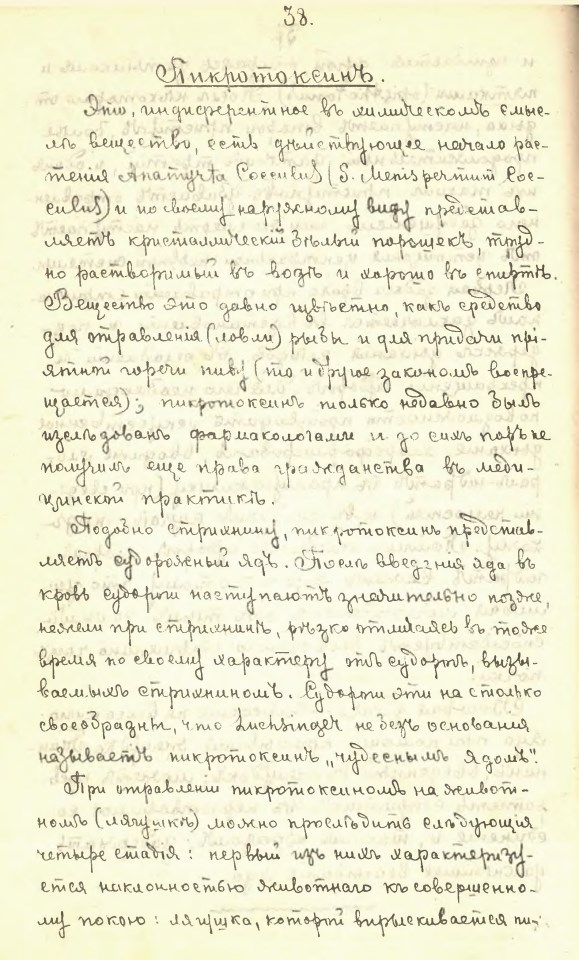 38.
Пикротоксинъ.
Это, индиферентное въ химическомъ смыс-
лѣ вещество, есть дѣйствующее начало рас-
тенія Anamyrta Cocculus (S. Menispermum Coc-
culus) и по своему наружному виду представ-
ляетъ кристаллическій бѣлый порошекъ, труд-
но растворимый въ водѣ и хорошо въ спиртѣ.
Вещество это давно извѣстно, какъ средство
для отравленія (ловли) рыбы и для придачи прі-
ятной горечи пиву (то и другое закономъ воспре-
щается); пикротоксинъ только недавно былъ
изслѣдованъ фармакологами и до сихъ поръ не
получилъ еще права гражданства въ меди-
цинской практикѣ.
Подобно стрихнину, пикротоксинъ представ-
ляетъ судорожный ядъ. Послѣ введенія яда въ
кровь судороги наступаютъ значительно позже,
нежели при стрихнинѣ, рѣзко отличаясь въ тоже
время по своему характеру отъ судорогъ, вызы-
ваемыхъ стрихниномъ. Судороги эти на столько
своеобразны, что Luchsinger не безъ основанія
называетъ пикротоксинъ „чудеснымъ ядомъ".
При отравленіи пикротоксиномъ на живот-
номъ (лягушкѣ) можно прослѣдить слѣдующія
четыре стадія: первый изъ нихъ характеризу-
ется наклонностью животнаго къ совершенно-
му покою: лягушка, которой впрыскивается пи-